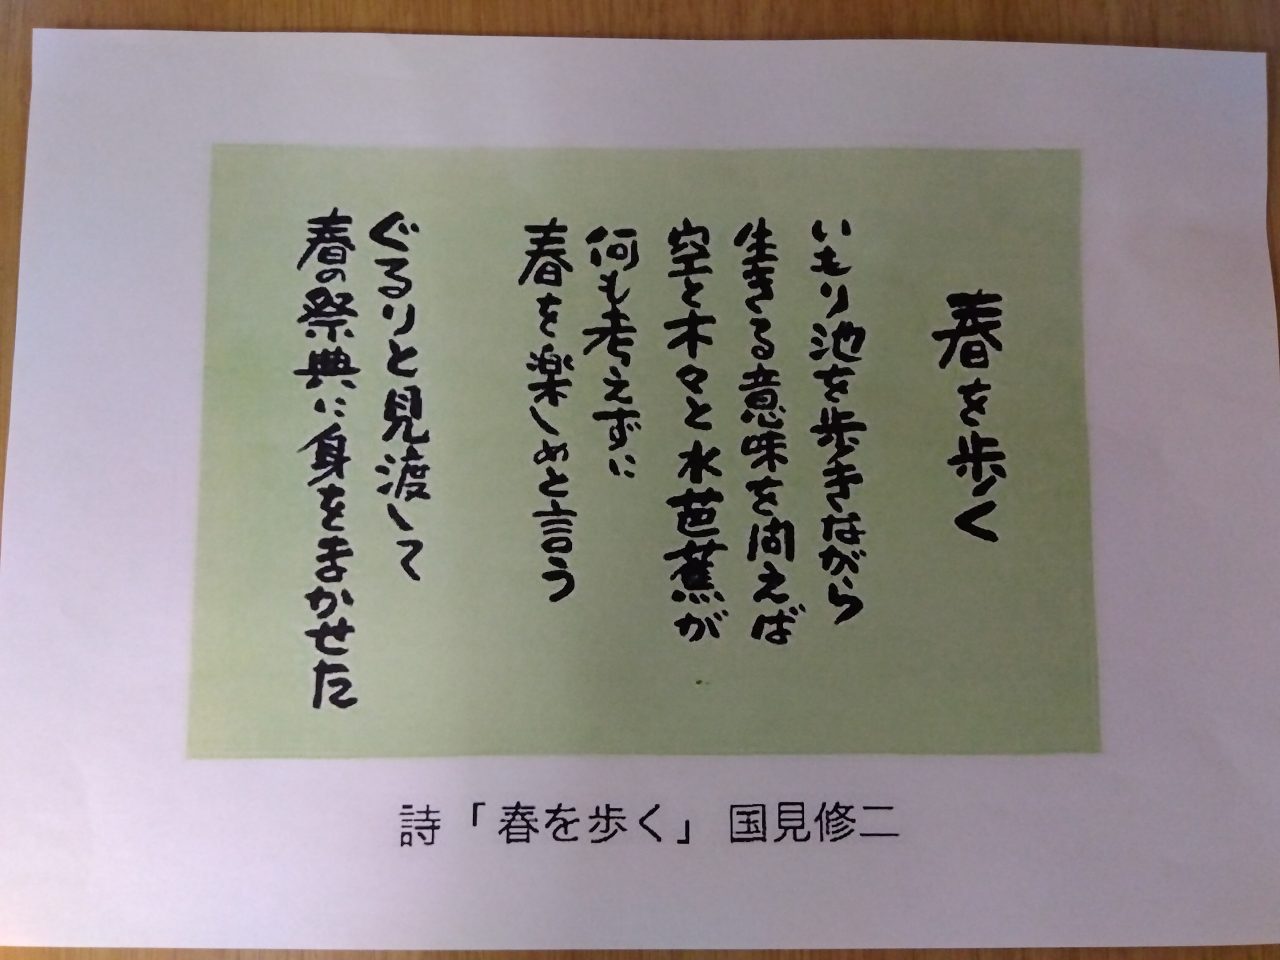 春を歩く
いもり池を歩きながら
生きる意味を問えば
空と木々と水芭蕉が
何も考えずに
春を楽しめと言う
ぐるりと見渡して
春の祭典に身をまかせた
詩「春を歩く」 国見修二